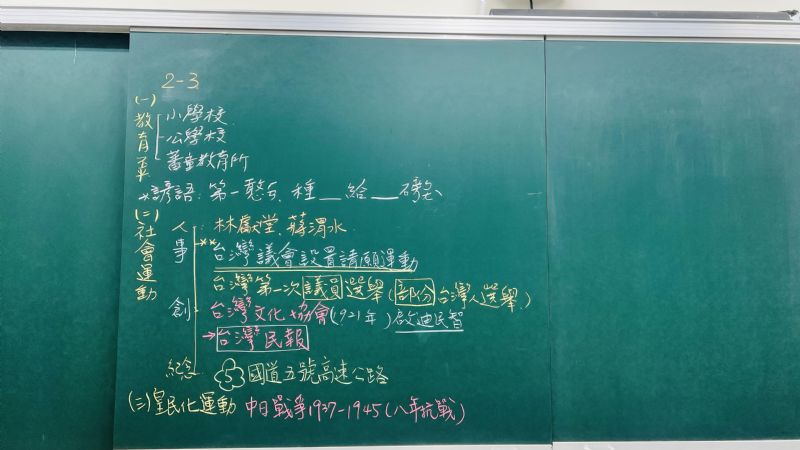 2-3
(一)教育
小學校
公學校
蕃童教育所
*諺語：第一憨 種__給__磅
(二)社會運動
人：林獻堂、蔣渭水
事 **台灣議會設置請願運動
台灣第一次議員選舉(部分台灣人選舉)
創 台灣文化協會(1921年)啟迪民智
→台灣民報
紀念 5 國道五號高速公路
(三)皇民化運動 中日戰爭1937-1945(八年抗戰)